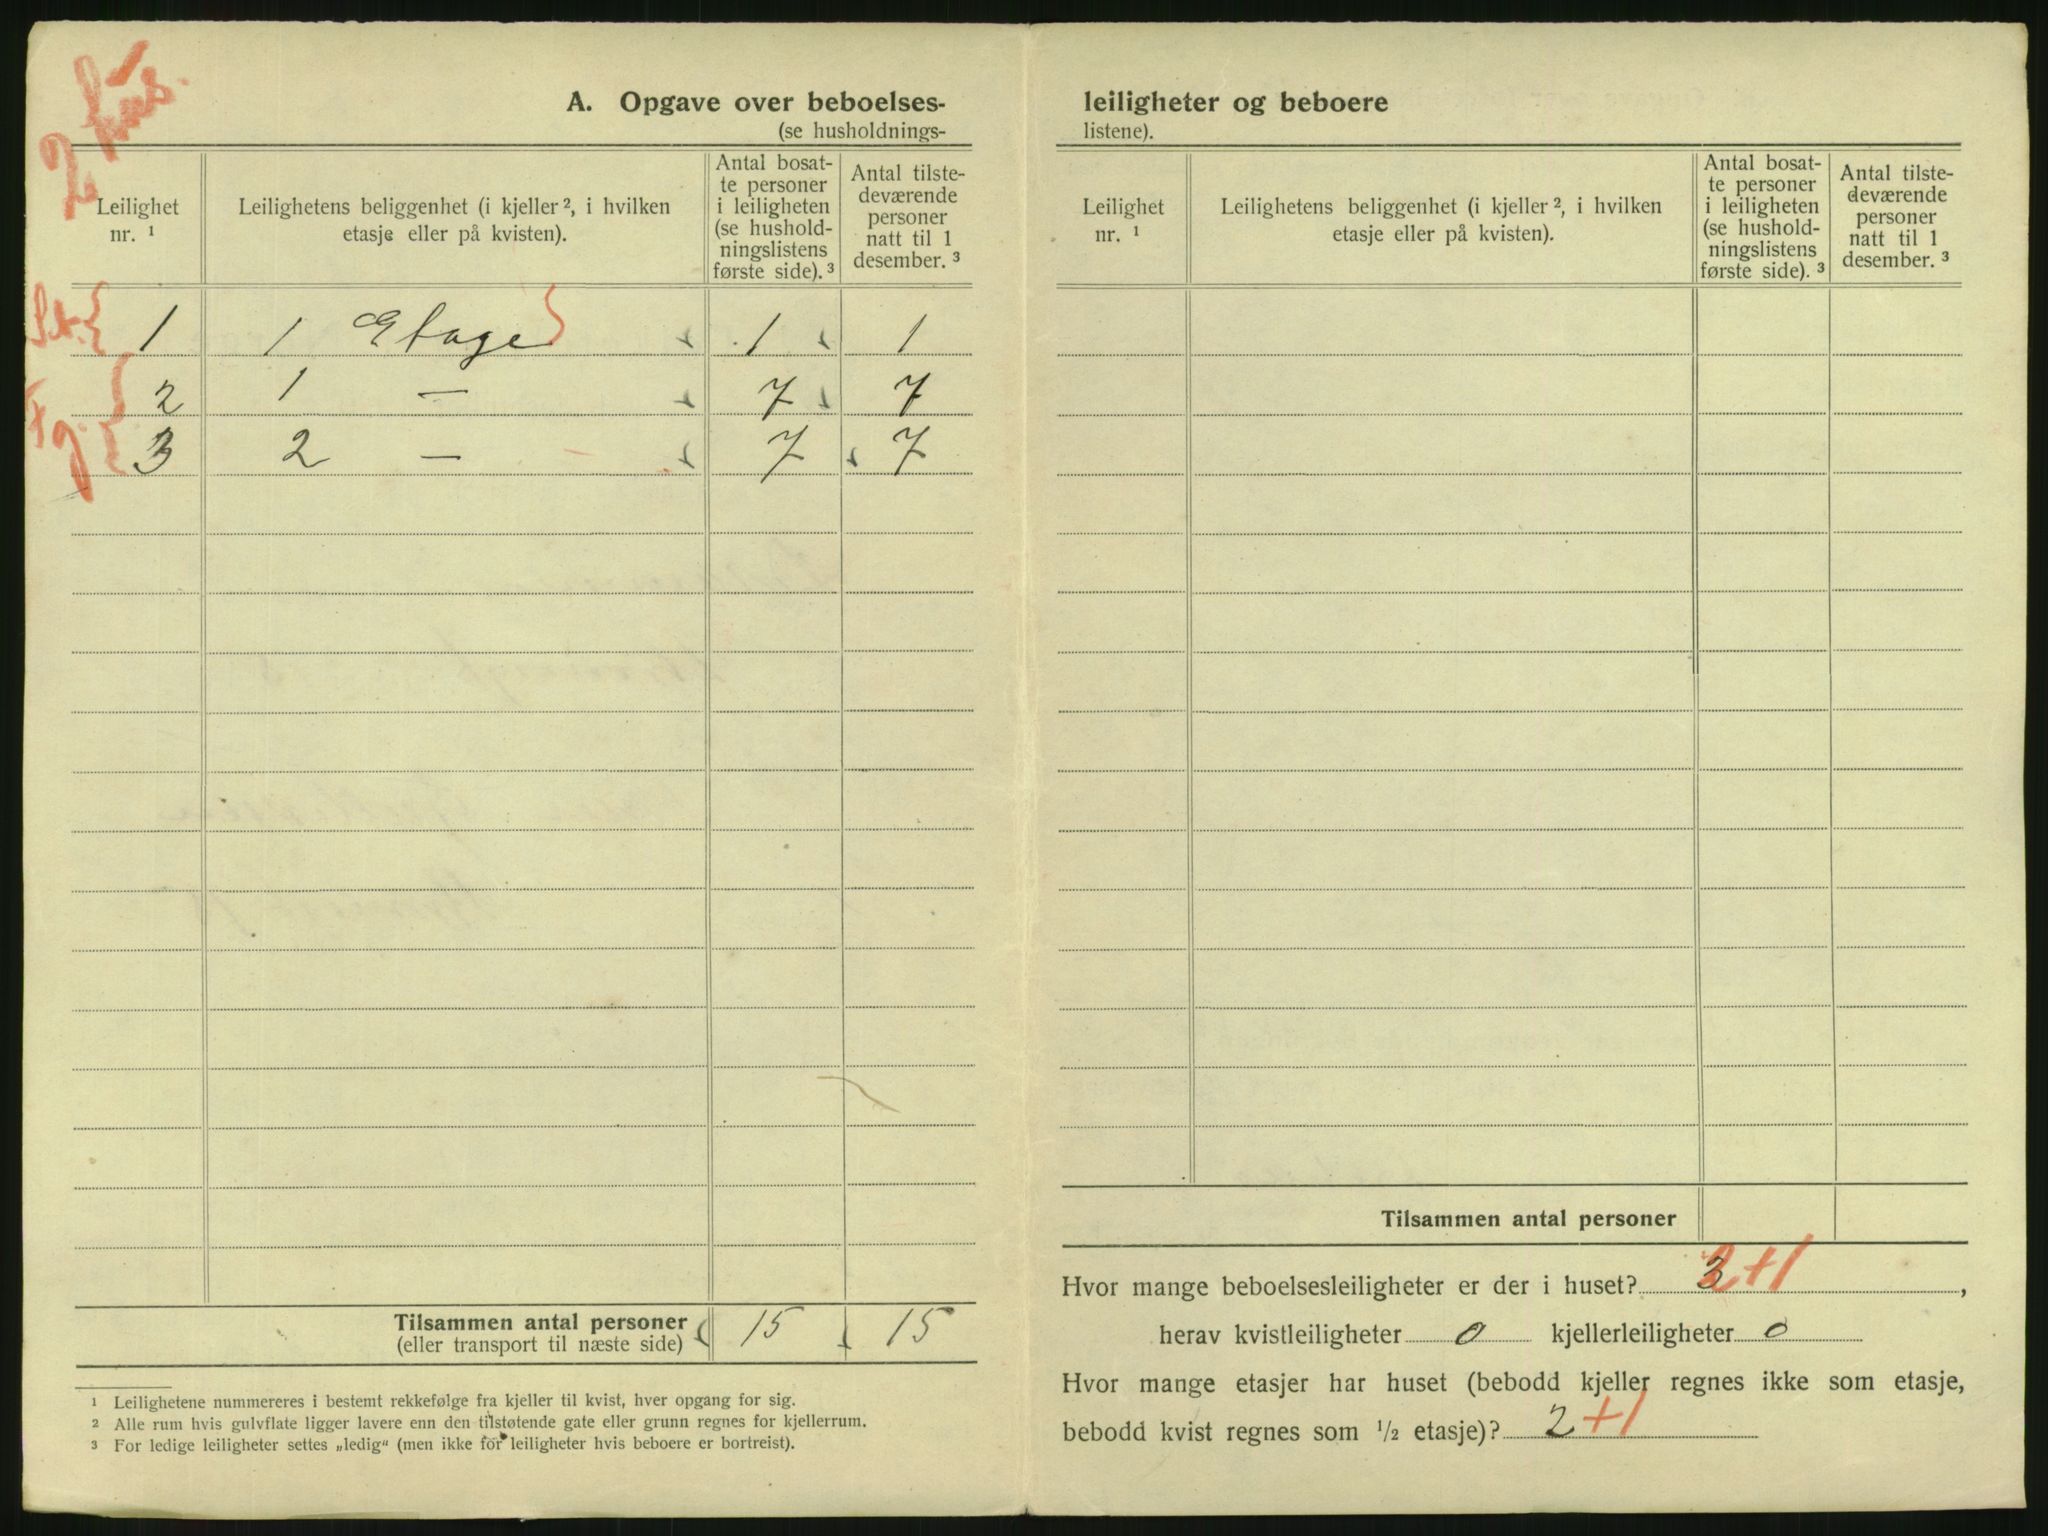 2 hus.
A. Opgave over beboelses-
(se husholdnings-
Leilighet
nr. ¹
Leilighetens beliggenhet (i kjeller ², i hvilken
etasje eller på kvisten).
Antal bosat-
te personer
i leiligheten
(se hushold-
ningslistens
første side). ³
Antal tilste-
deværende
personer
natt til 1
desember. ³
1 1 Etage 1 1
2 1 — 7 7
3 2 — 7 7
Fg.
Tilsammen antal personer 15 15
(eller transport til næste side)
¹ Leilighetene nummereres i bestemt rekkefølge fra kjeller til kvist, hver opgang for sig.
² Alle rum hvis gulvflate ligger lavere enn den tilstøtende gate eller grunn regnes for kjellerrum.
³ For ledige leiligheter settes „ledig“ (men ikke for leiligheter hvis beboere er bortreist).
leiligheter og beboere
listene).
Leilighet
nr. ¹
Leilighetens beliggenhet (i kjeller ², i hvilken
etasje eller på kvisten).
Antal bosat-
te personer
i leiligheten
(se hushold-
ningslistens
første side). ³
Antal tilste-
deværende
personer
natt til 1
desember. ³
Tilsammen antal personer
Hvor mange beboelsesleiligheter er der i huset? 3 2+1,
herav kvistleiligheter 0 kjellerleiligheter 0
Hvor mange etasjer har huset (bebodd kjeller regnes ikke som etasje,
bebodd kvist regnes som ½ etasje)? 2+1